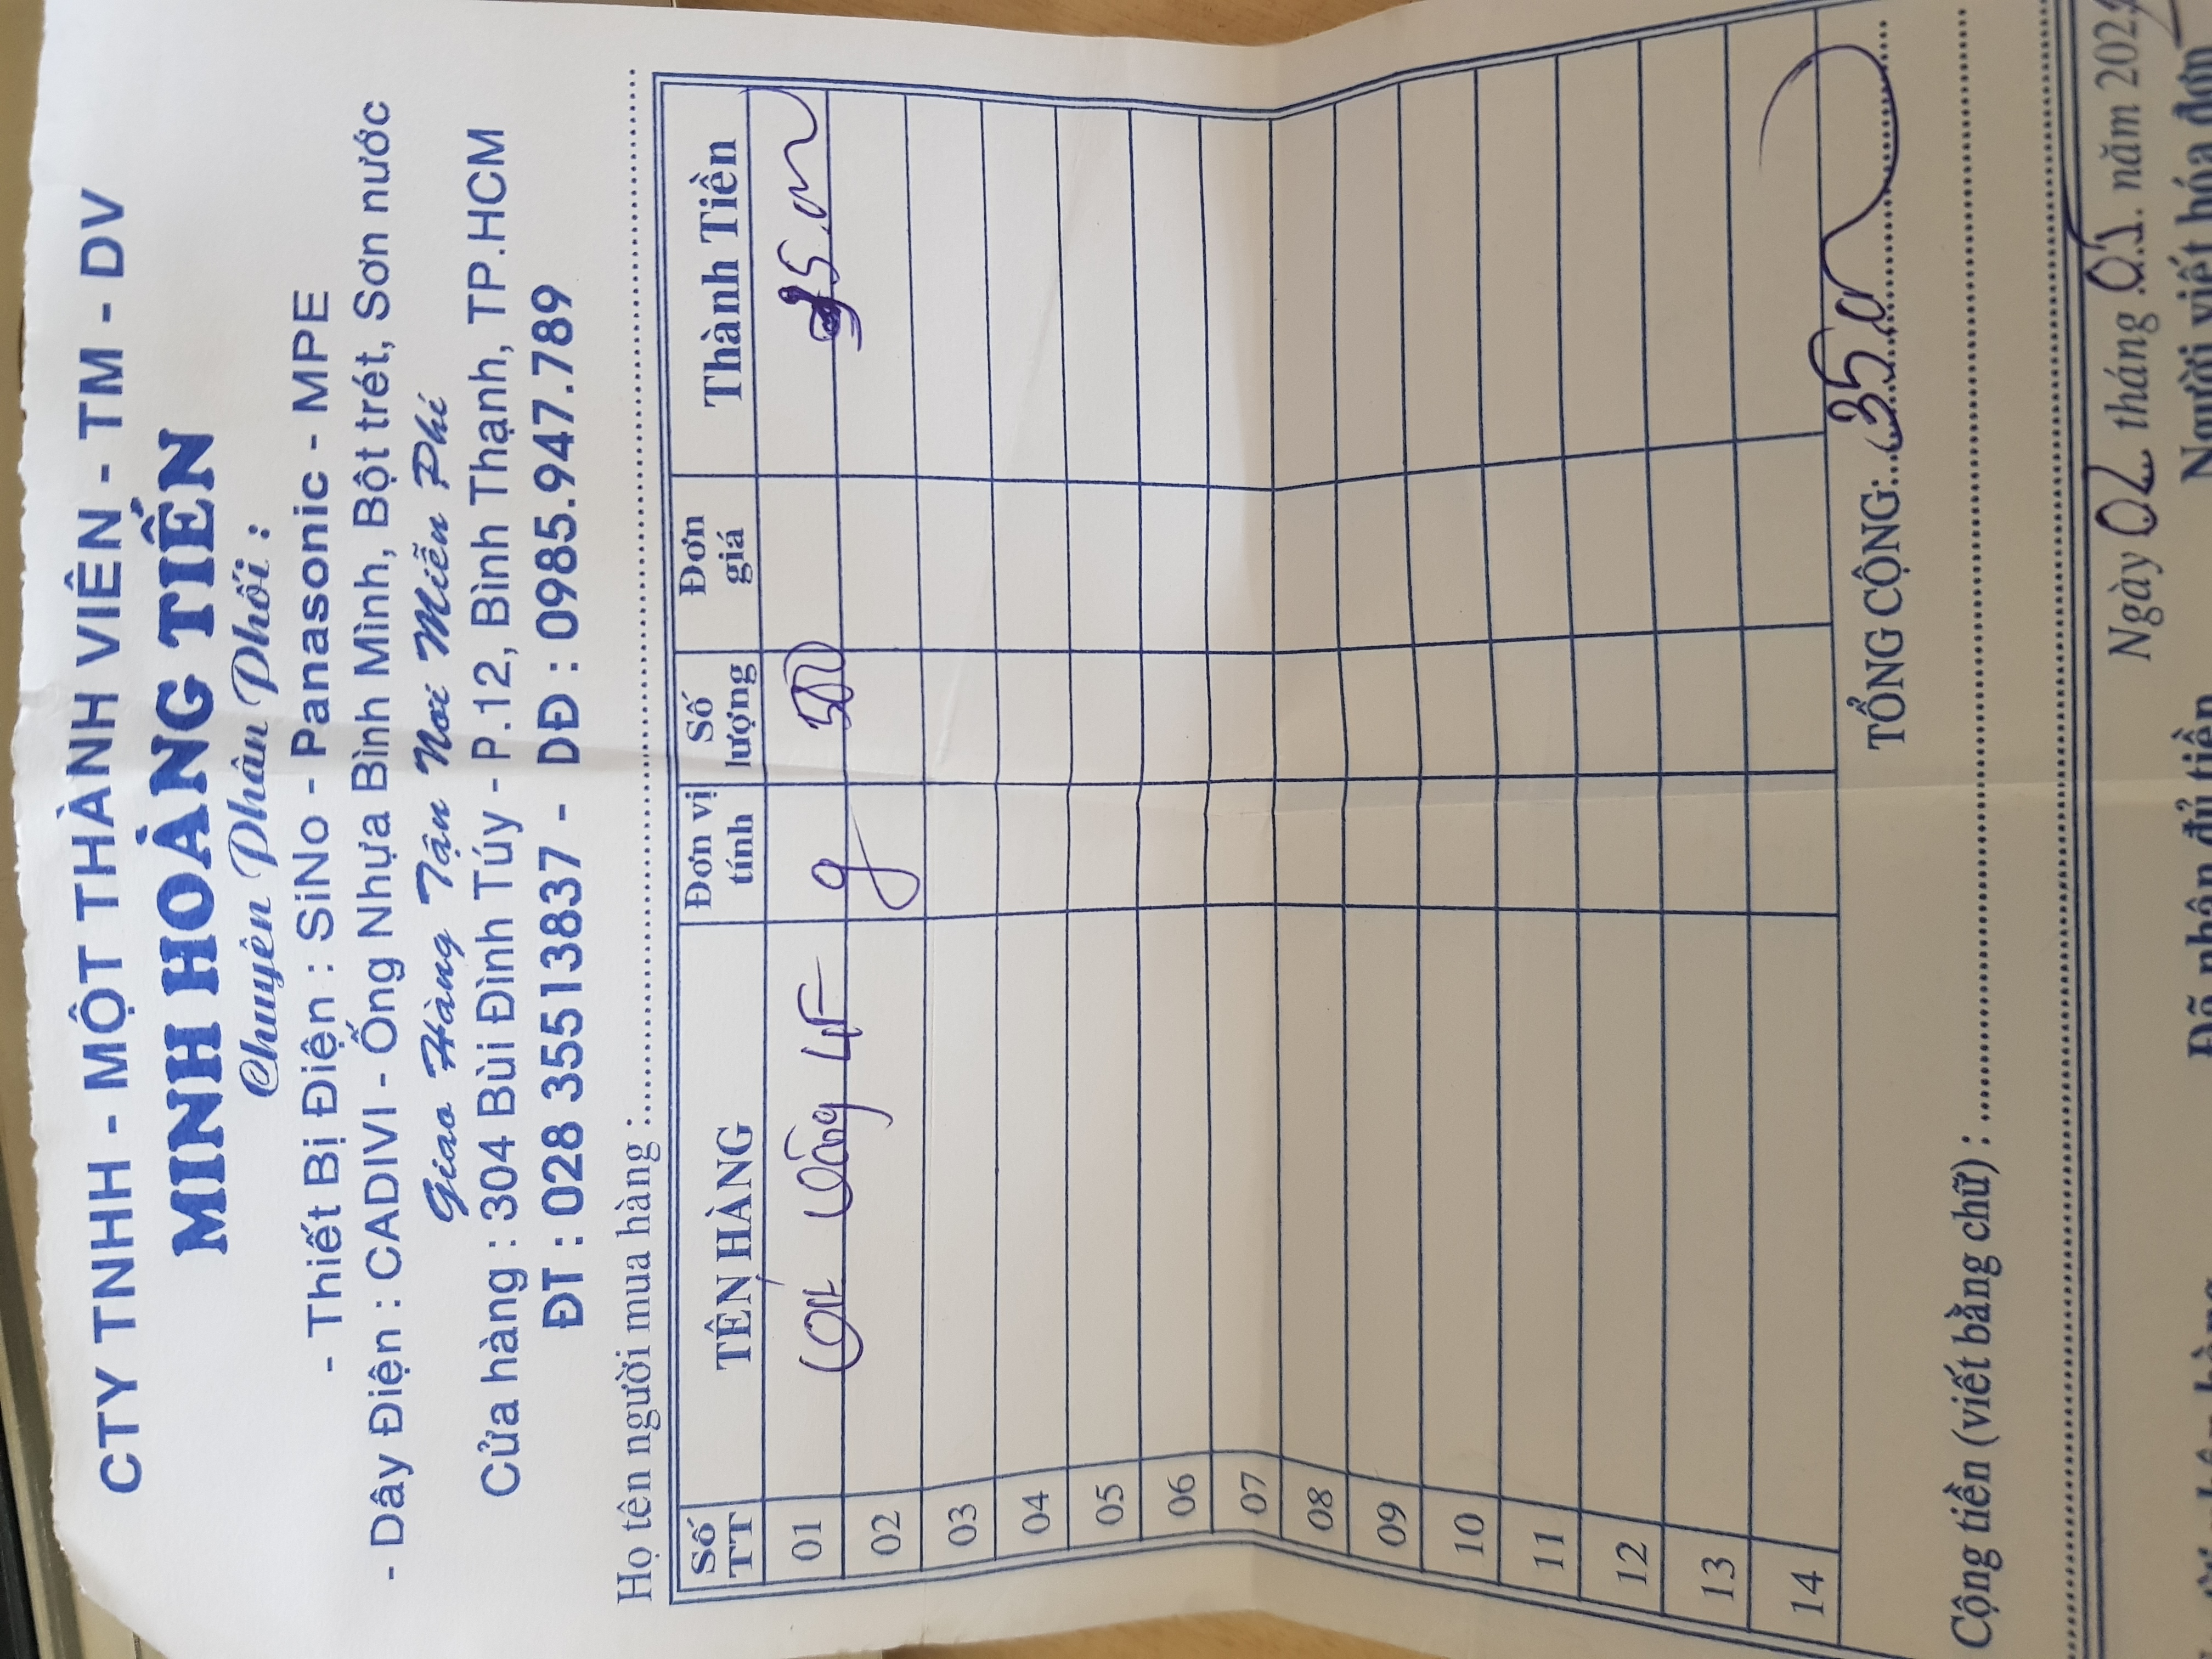 CTY TNHH - MỘT THÀNH VIÊN - TM - DV
MINH HOÀNG TIẾN
Chuyên Phân Phối :
- Thiết Bị Điện : SiNo - Panasonic - MPE
- Dây Điện : CADIVI - Ống Nhựa Bình Minh, Bột trét, Sơn nước
Giao Hàng Tận Nơi Miễn Phí
Cửa hàng : 304 Bùi Đình Túy - P.12, Bình Thạnh, TP.HCM
ĐT : 028 35513837 - DĐ : 0985.947.789
Họ tên người mua hàng :
Số TT TÊN HÀNG Đơn vị tính Số lượng Đơn giá Thành Tiền
01 g
02
03
04
05
06
07
08
09
10
11
12
13
14
TỔNG CỘNG: 35
Cộng tiền (viết bằng chữ) :
Ngày 02 tháng 01 năm 202
Đã nhận đủ tiền Người viết hóa đơn